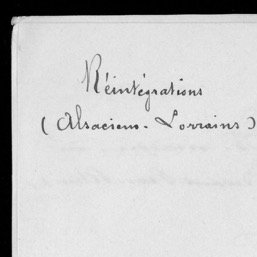 Réintégrations
(Alsaciens-Lorrains)